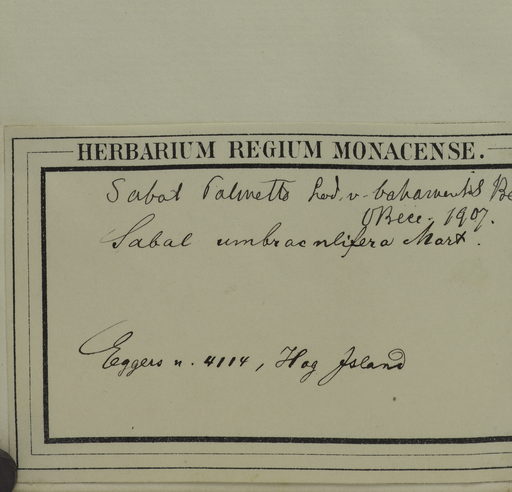 HERBARIUM REGIUM MONACENSE.
Sabal Palmetto Lod. v. bahamensis Be
OBecc. 1907.
Sabal umbraculifera Mart.
Eggers n. 4114, Hog Island